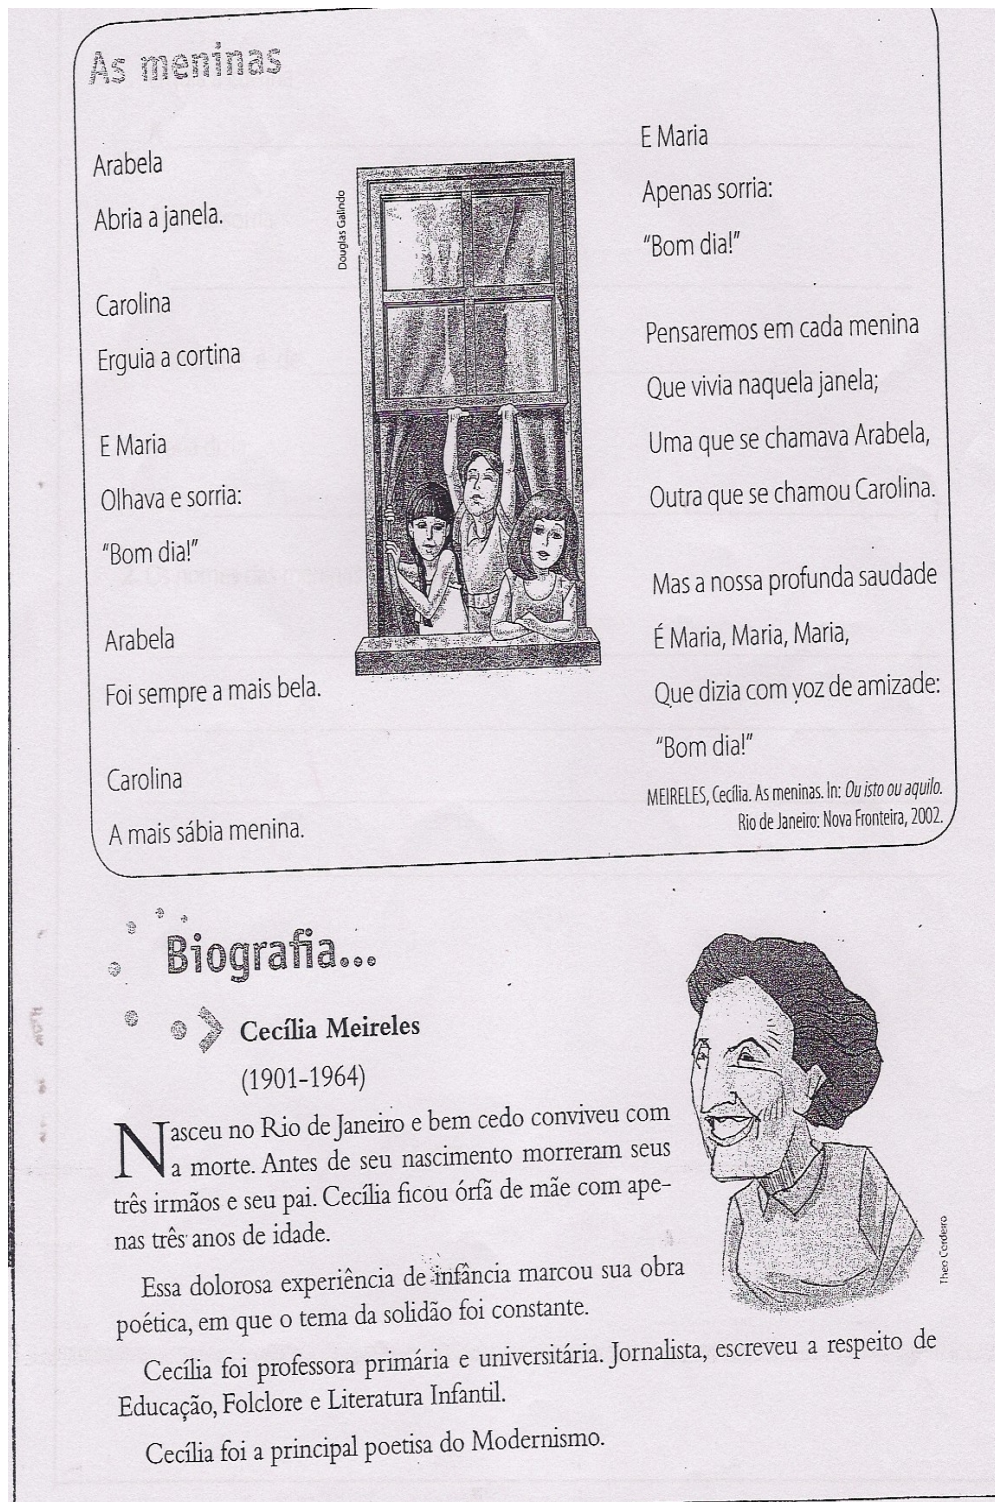 As meninas
Arabela
Abria a janela.
Carolina
Erguia a cortina
E Maria
Olhava e sorria:
“Bom dia!”
Arabela
Foi sempre a mais bela.
Carolina
A mais sábia menina.
Douglas Galindo
E Maria
Apenas sorria:
“Bom dia!”
Pensaremos em cada menina
Que vivia naquela janela;
Uma que se chamava Arabela,
Outra que se chamou Carolina.
Mas a nossa profunda saudade
É Maria, Maria, Maria,
Que dizia com voz de amizade:
“Bom dia!”
MEIRELES, Cecília. As meninas. In: Ou isto ou aquilo.
Rio de Janeiro: Nova Fronteira, 2002.
Biografia...
Cecília Meireles
(1901-1964)
Nasceu no Rio de Janeiro e bem cedo conviveu com
a morte. Antes de seu nascimento morreram seus
três irmãos e seu pai. Cecília ficou órfã de mãe com ape-
nas três anos de idade.
Essa dolorosa experiência de infância marcou sua obra
poética, em que o tema da solidão foi constante.
Cecília foi professora primária e universitária. Jornalista, escreveu a respeito de
Educação, Folclore e Literatura Infantil.
Cecília foi a principal poetisa do Modernismo.
Theo Cordeiro